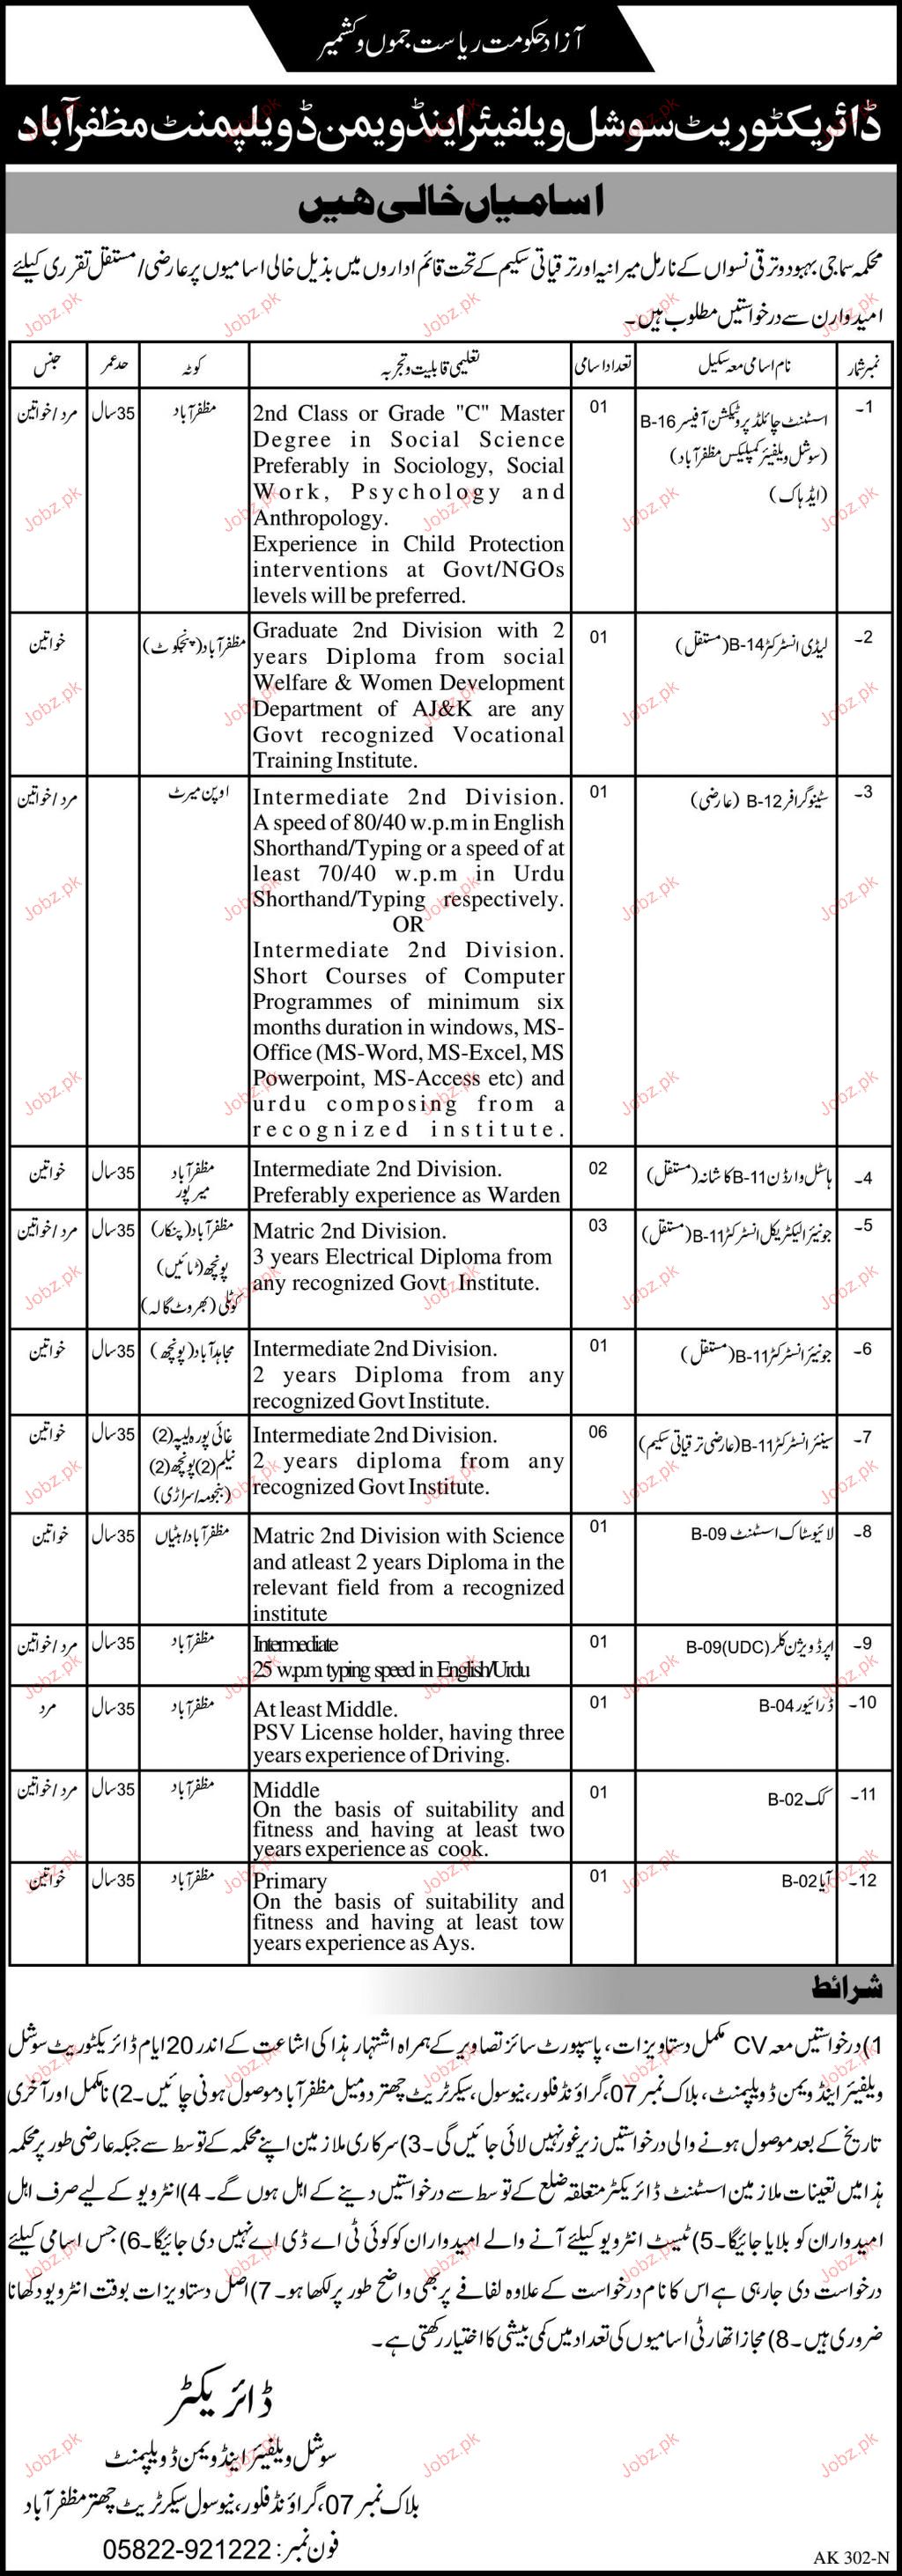 آزاد حکومت ریاست جموں و کشمیر
ڈائریکٹوریٹ سوشل ویلفیئر اینڈ ویمن ڈویلپمنٹ مظفرآباد
اسامیاں خالی ھیں
محکمہ سماجی بہبود و ترقی نسواں کے نارمل میزانیہ اور ترقیاتی سکیم کے تحت قائم اداروں میں بذیل خالی اسامیوں پر عارضی/مستقل تقرری کیلئے
امیدوارن سے درخواستیں مطلوب ہیں۔
نمبر شمار نام اسامی معہ سکیل تعداد اسامی تعلیمی قابلیت و تجربہ کوٹہ حد عمر جنس
1۔ اسسٹنٹ چائلڈ پروٹیکشن آفیسر B-16
(سوشل ویلفیئر کمپلیکس مظفرآباد)
(ایڈہاک)
01
2nd Class or Grade "C" Master
Degree in Social Science
Preferably in Sociology, Social
Work, Psychology and
Anthropology.
Experience in Child Protection
interventions at Govt/NGOs
levels will be preferred.
مظفرآباد 35سال مرد/خواتین
2۔ لیڈی انسٹرکٹر B-14(مستقل) 01
Graduate 2nd Division with 2
years Diploma from social
Welfare & Women Development
Department of AJ&K are any
Govt recognized Vocational
Training Institute.
مظفرآباد(پنجکوٹ) خواتین
3۔ سٹینوگرافر B-12 (عارضی) 01
Intermediate 2nd Division.
A speed of 80/40 w.p.m in English
Shorthand/Typing or a speed of at
least 70/40 w.p.m in Urdu
Shorthand/Typing respectively.
OR
Intermediate 2nd Division.
Short Courses of Computer
Programmes of minimum six
months duration in windows, MS-
Office (MS-Word, MS-Excel, MS
Powerpoint, MS-Access etc) and
urdu composing from a
recognized institute.
اوپن میرٹ مرد/خواتین
4۔ ہاسٹل وارڈن B-11 کاشانہ (مستقل) 02
Intermediate 2nd Division.
Preferably experience as Warden
مظفرآباد
میرپور
35سال خواتین
5۔ جونیئر الیکٹریکل انسٹرکٹر B-11(مستقل) 03
Matric 2nd Division.
3 years Electrical Diploma from
any recognized Govt Institute.
مظفرآباد (پٹکار)
پونچھ (ٹائیں)
کوٹلی (بھروٹ گالہ)
35سال مرد/خواتین
6۔ جونیئر انسٹرکٹر B-11(مستقل) 01
Intermediate 2nd Division.
2 years Diploma from any
recognized Govt Institute.
مجاہدآباد (پونچھ) 35سال خواتین
7۔ سینئر انسٹرکٹر B-11(عارضی ترقیاتی سکیم) 06
Intermediate 2nd Division.
2 years diploma from any
recognized Govt Institute.
(2)
نیلم (2) پونچھ (2)
35سال خواتین
8۔ لائیوسٹاک اسسٹنٹ B-09 01
Matric 2nd Division with Science
and atleast 2 years Diploma in the
relevant field from a recognized
institute
مظفرآباد/ہٹیاں 35سال خواتین
9۔ اپر ڈویژن کلرک (UDC)B-09 01
Intermediate
25 w.p.m typing speed in English/Urdu
مظفرآباد 35سال مرد/خواتین
10۔ ڈرائیور B-04 01
At least Middle.
PSV License holder, having three
years experience of Driving.
مظفرآباد 35سال مرد
11۔ کک B-02 01
Middle
On the basis of suitability and
fitness and having at least two
years experience as cook.
مظفرآباد 35سال مرد/خواتین
12۔ آیا B-02 01
Primary
On the basis of suitability and
fitness and having at least tow
years experience as Ays.
مظفرآباد 35سال خواتین
شرائط
1) درخواستیں معہ CV مکمل دستاویزات، پاسپورٹ سائز تصاویر کے ہمراہ اشتہار ہذا کی اشاعت کے اندر 20 ایام ڈائریکٹوریٹ سوشل
ویلفیئر اینڈ ویمن ڈویلپمنٹ، بلاک نمبر 07، گراؤنڈ فلور، نیو سول، سیکرٹریٹ چھتر دومیل مظفرآباد موصول ہونی چائیں۔ 2) نامکمل اور آخری
تاریخ کے بعد موصول ہونے والی درخواستیں زیر غور نہیں لائی جائیں گی۔ 3) سرکاری ملازمین اپنے محکمہ کے توسط سے جبکہ عارضی طور پر محکمہ
ہذا میں تعینات ملازمین اسسٹنٹ ڈائریکٹر متعلقہ ضلع کے توسط سے درخواستیں دینے کے اہل ہوں گے۔ 4) انٹرویو کے لیے صرف اہل
امیدواران کو بلایا جائیگا۔ 5) ٹیسٹ انٹرویو کیلئے آنے والے امیدواران کو کوئی ٹی اے ڈی اے نہیں دی جائیگا۔ 6) جس اسامی کیلئے
درخواست دی جارہی ہے اس کا نام درخواست کے علاوہ لفافے پر بھی واضح طور پر لکھا ہو۔ 7) اصل دستاویزات بوقت انٹرویو دکھانا
ضروری ہیں۔ 8) مجاز اتھارٹی اسامیوں کی تعداد میں کمی بیشی کا اختیار رکھتی ہے۔
ڈائریکٹر
سوشل ویلفیئر اینڈ ویمن ڈویلپمنٹ
بلاک نمبر 07، گراؤنڈ فلور، نیو سول سیکرٹریٹ چھتر مظفرآباد
فون نمبر: 05822-921222
AK 302-N
Jobz.pk